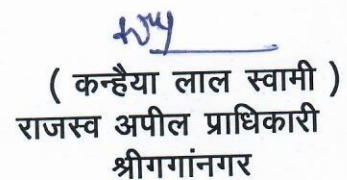 ( कन्हैया लाल स्वामी )
राजस्व अपील प्राधिकारी
श्रीगगांनगर